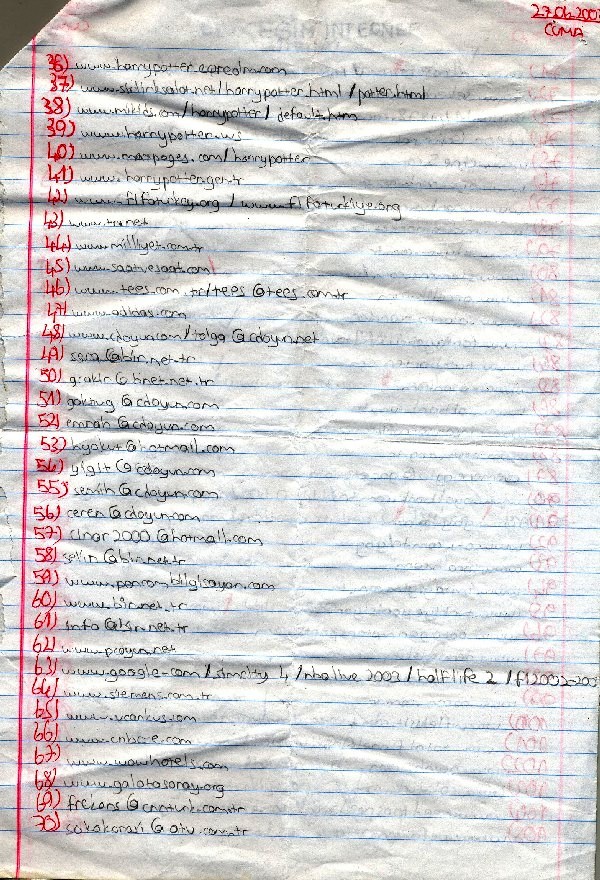 27.06.2003
CUMA
36) www.harrypotter.
37) www. /harrypotter.html /potter.html
38) www.mikids.com/harrypotter/default.htm
39) www.harrypotter.ws
40) www.maxpages.com/harrypotter
41) www.harrypotter.gen.tr
42) www.f1faturkey.org / www.f1faturkiye.org
43) www.trt.net
44) www.milliyet.com.tr
45) www.saatvesaat.com
46) www.tees.com.tr/tees@tees.com.tr
47) www.adidas.com
48) www.cdoyun.com/tolga@cdoyun.net
49) @bir.net.tr
50) @binet.net.tr
51) goktug@cdoyun.com
52) emrah@cdoyun.com
53) hyakut@hotmail.com
54) yigit@cdoyun.com
55) semih@cdoyun.com
56) ceren@cdoyun.com
57) cinar2000@hotmail.com
58) selin@bir.net.tr
59) www. bilgisayar.com
60) www.bir.net.tr
61) info@ .net.tr
62) www.pcoyun.net
63) www.google.com / simcity 4 / nba live 2003 / half life 2 / f1 2002-200
64) www.siemens.com.tr
65) www. .com
66) www.cnbc-e.com
67) www.wowhotels.com
68) www.galatasaray.org
69) frekans@cnnturk.com.tr
70) @atv.com.tr